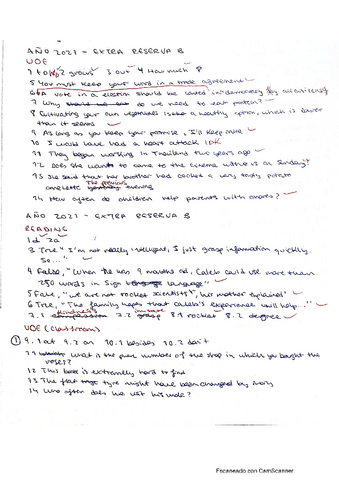 AÑO 2021 - EXTRA RESERVA B
UOE
1 to 2 grows 3 out 4 How much 8
5 You must keep your word in a trade agreement
6 A vote in a election should be in democracy by all citizens
7 Why do we need to eat protein?
8 Cultivating your own vegetables is a healthy option, which is easier
than it seems
9 As long as you keep your promise, I'll keep mine
10 I would have had a heart attack IDK
11 They began working in Thailand two years ago
12 Does she want to come to the cinema with us on Sunday?
13 She said that her brother had cooked a very tasty potato
omelette The previous evening
14 How often do children help parents with chores?
AÑO 2021 - EXTRA RESERVA B
READING
1d 2a
3 True "I'm not really intelligent, I just grasp information quickly.
So..."
4 False, "When he was 9 months old, Caleb could use more than
250 words in Sign language"
5 False, "we are not rocket scientists", his mother explained"
6 True, "The family hopes that Caleb's experience will help..."
7.1 kindness 7.2 grasp 8.1 rocket 8.2 degree
UOE (Classroom)
9.1 at 9.2 on 10.1 besides 10.2 don't
11 What is the phone number of the shop in which you bought the
roses?
12 This book is extremely hard to find
13 The flat tyre might have been changed by Mary
14 Who often does he visit his uncle?
Escaneado con CamScanner